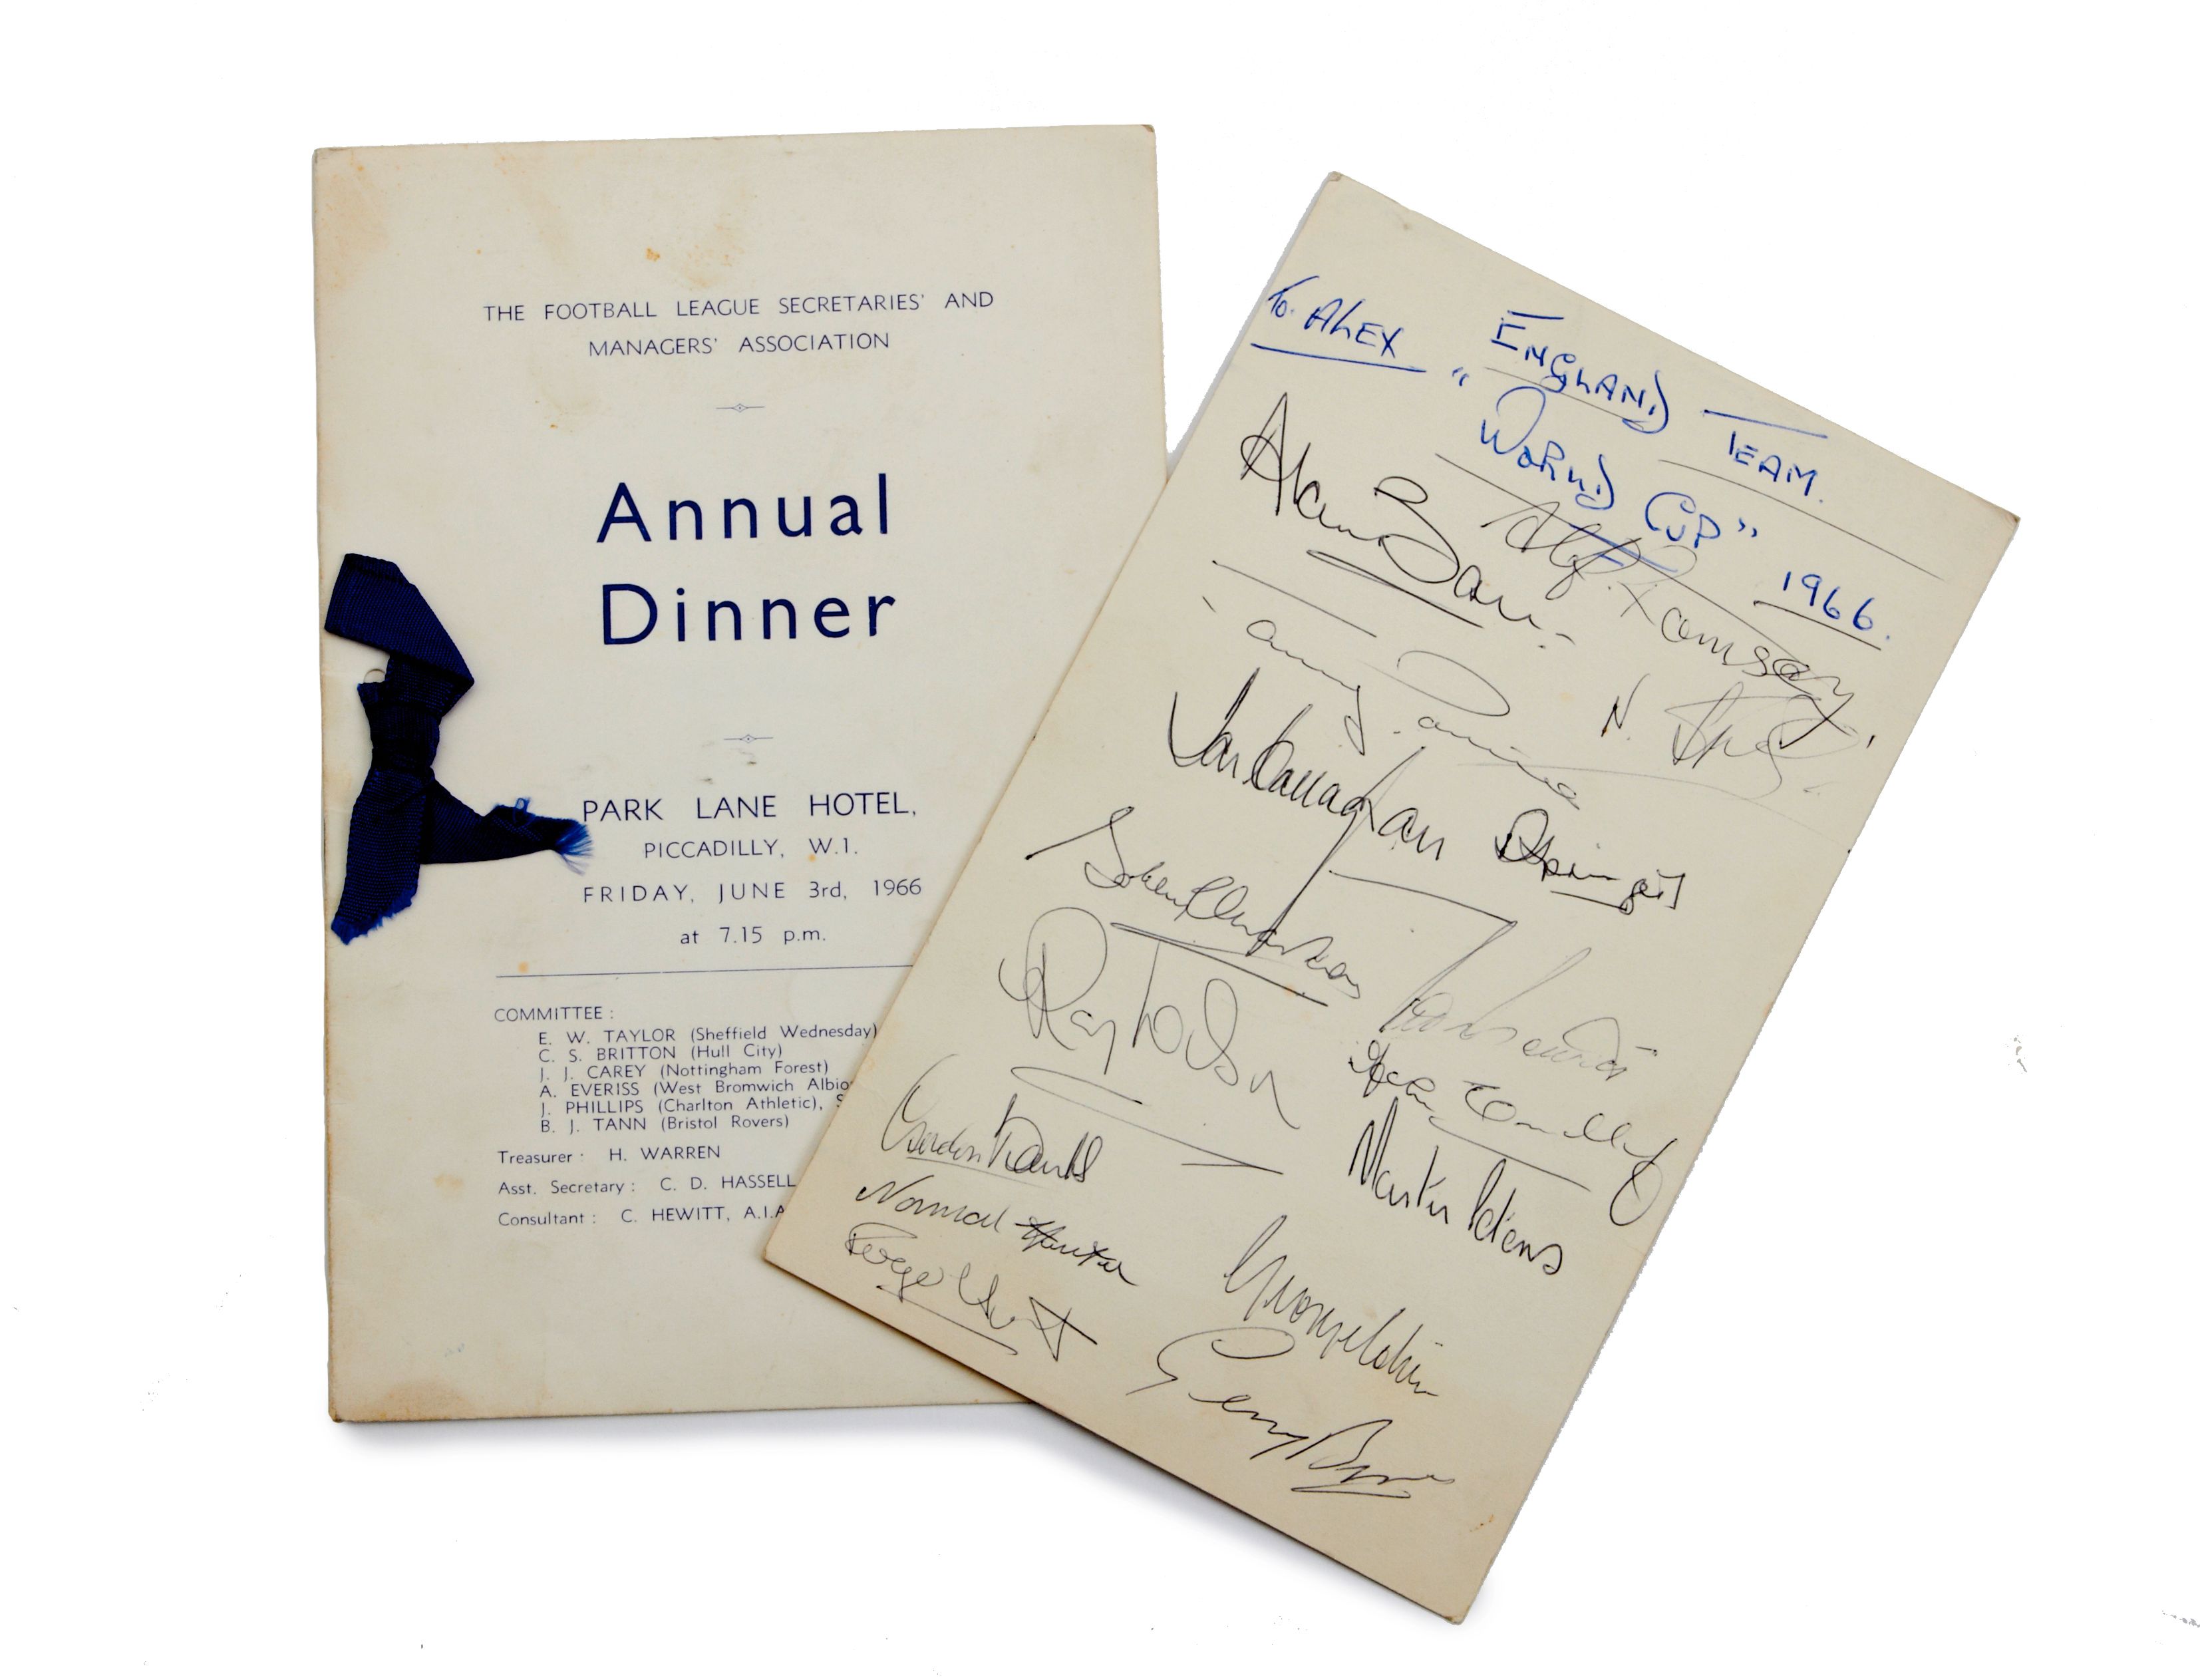 THE FOOTBALL LEAGUE SECRETARIES' AND
MANAGERS' ASSOCIATION
Annual
Dinner
PARK LANE HOTEL,
PICCADILLY, W.1.
FRIDAY, JUNE 3rd, 1966
at 7.15 p.m.
COMMITTEE :
E. W. TAYLOR (Sheffield Wednesday)
C. S. BRITTON (Hull City)
J. J. CAREY (Nottingham Forest)
A. EVERISS (West Bromwich Albio
J. PHILLIPS (Charlton Athletic),
B. J. TANN (Bristol Rovers)
Treasurer : H. WARREN
Asst. Secretary : C. D. HASSELL
Consultant : C. HEWITT, A.I.A
To. ALEX
ENGLAND TEAM.
"WORLD CUP" 1966.
Alan Ball
Alf. Ramsey
N. Stiles
Ian Callaghan
R Springett
Ray Wilson
Martin Peters
Gordon Banks
Norman Hunter
George Cohen
Gerry Byrne